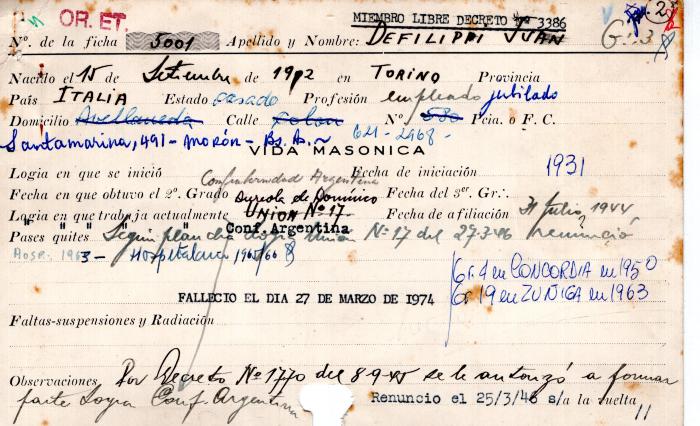 OR. ET.
MIEMBRO LIBRE DECRETO Nº 3386
Nº. de la ficha 5001 Apellido y Nombre: DEFILIPPI JUAN
Nacido el 15 de Setiembre de 1912 en TORINO Provincia
País ITALIA Estado casado Profesión empleado jubilado
Domicilio Avellaneda Calle Colon Nº 580 Pcia. o F. C.
Santamarina, 491 - Morón - Bs. As. 621-2968-
VIDA MASONICA
Logia en que se inició Confraternidad Argentina Fecha de iniciación 1931
Fecha en que obtuvo el 2º. Grado Aureola de Domínico Fecha del 3er. Gr.:.
Logia en que trabaja actualmente UNION Nº 17 Fecha de afiliación 31 Julio 1944
Conf. Argentina
Pases quites Según plancha Logia Unión Nº 17 del 27-3-46 renunció
Hosp. 1963 - Hospitalario 1965/66
Gr. 4 en CONCORDIA en 1950
Gr 19 en ZUÑIGA en 1963
FALLECIO EL DIA 27 DE MARZO DE 1974
Faltas-suspensiones y Radiación
Observaciones Por Decreto Nº 1770 del 8-9-45 se le autorizó a formar
parte Logia Conf. Argentina
Renuncio el 25/3/46 s/a la vuelta
11